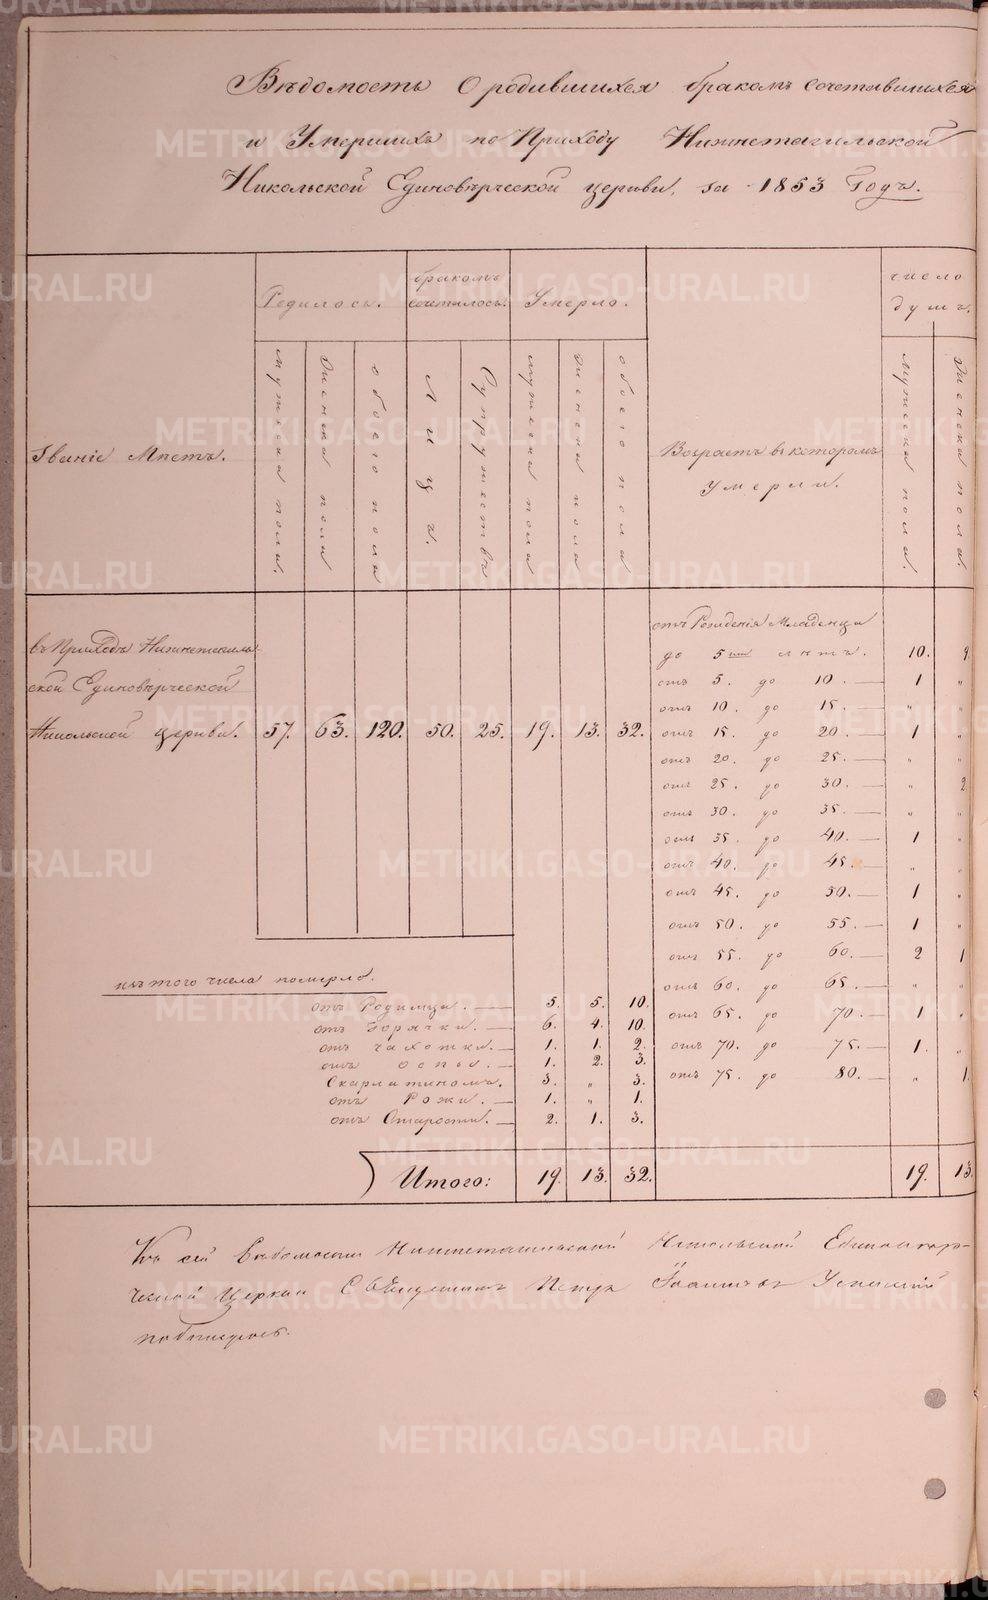 Вѣдомость О родившихся бракомъ сочетавшихся
и Умершихъ по Приходу Нижнетагильской
Никольской Единовѣрческой церкви, за 1853 Годъ.
Званіе Мѣстъ.
Родилось.
бракомъ сочеталось.
Умерло.
Возрастъ въ которомъ
Умерли.
число
душъ.
мужеска пола.
женска пола
обоего пола
Лицъ.
Супружествъ
мужеска пола
женска пола
обоего пола
мужеска пола.
женска пола.
въ Приходѣ Нижнетагиль-
ской Единовѣрческой
Никольской церкви. 57. 63. 120. 50. 25. 19. 13. 32.
отъ Рожденія Младенца
до 5ти лѣтъ. 10. 9
отъ 5. до 10. — 1 "
отъ 10. до 15. — " "
отъ 15. до 20. — 1 "
отъ 20. до 25. — " "
отъ 25. до 30. — " 2
отъ 30. до 35. — " "
отъ 35. до 40. — 1 "
отъ 40. до 45. — " "
отъ 45. до 50. — 1 "
отъ 50. до 55. — 1 "
отъ 55. до 60. — 2 1
отъ 60. до 65. — " "
отъ 65. до 70. — 1 "
отъ 70. до 75. — 1. "
отъ 75. до 80. — " 1.
изъ того числа померло.
отъ Родимца. — 5. 5. 10.
отъ Горячки. — 6. 4. 10.
отъ чахотки. — 1. 1. 2.
отъ оспы. — 1. 2. 3.
Скарлатиномъ. 3. " 3.
отъ Рожи. — 1. " 1.
отъ Старости. — 2. 1. 3.
Итого: 19. 13. 32. 19. 13.
Къ сей Вѣдомости Нижнетагильской Никольской Единовѣр-
ческой Церкви Священникъ Петръ Іоанновъ
подписуюсь.
METRIKI.GASO-URAL.RU